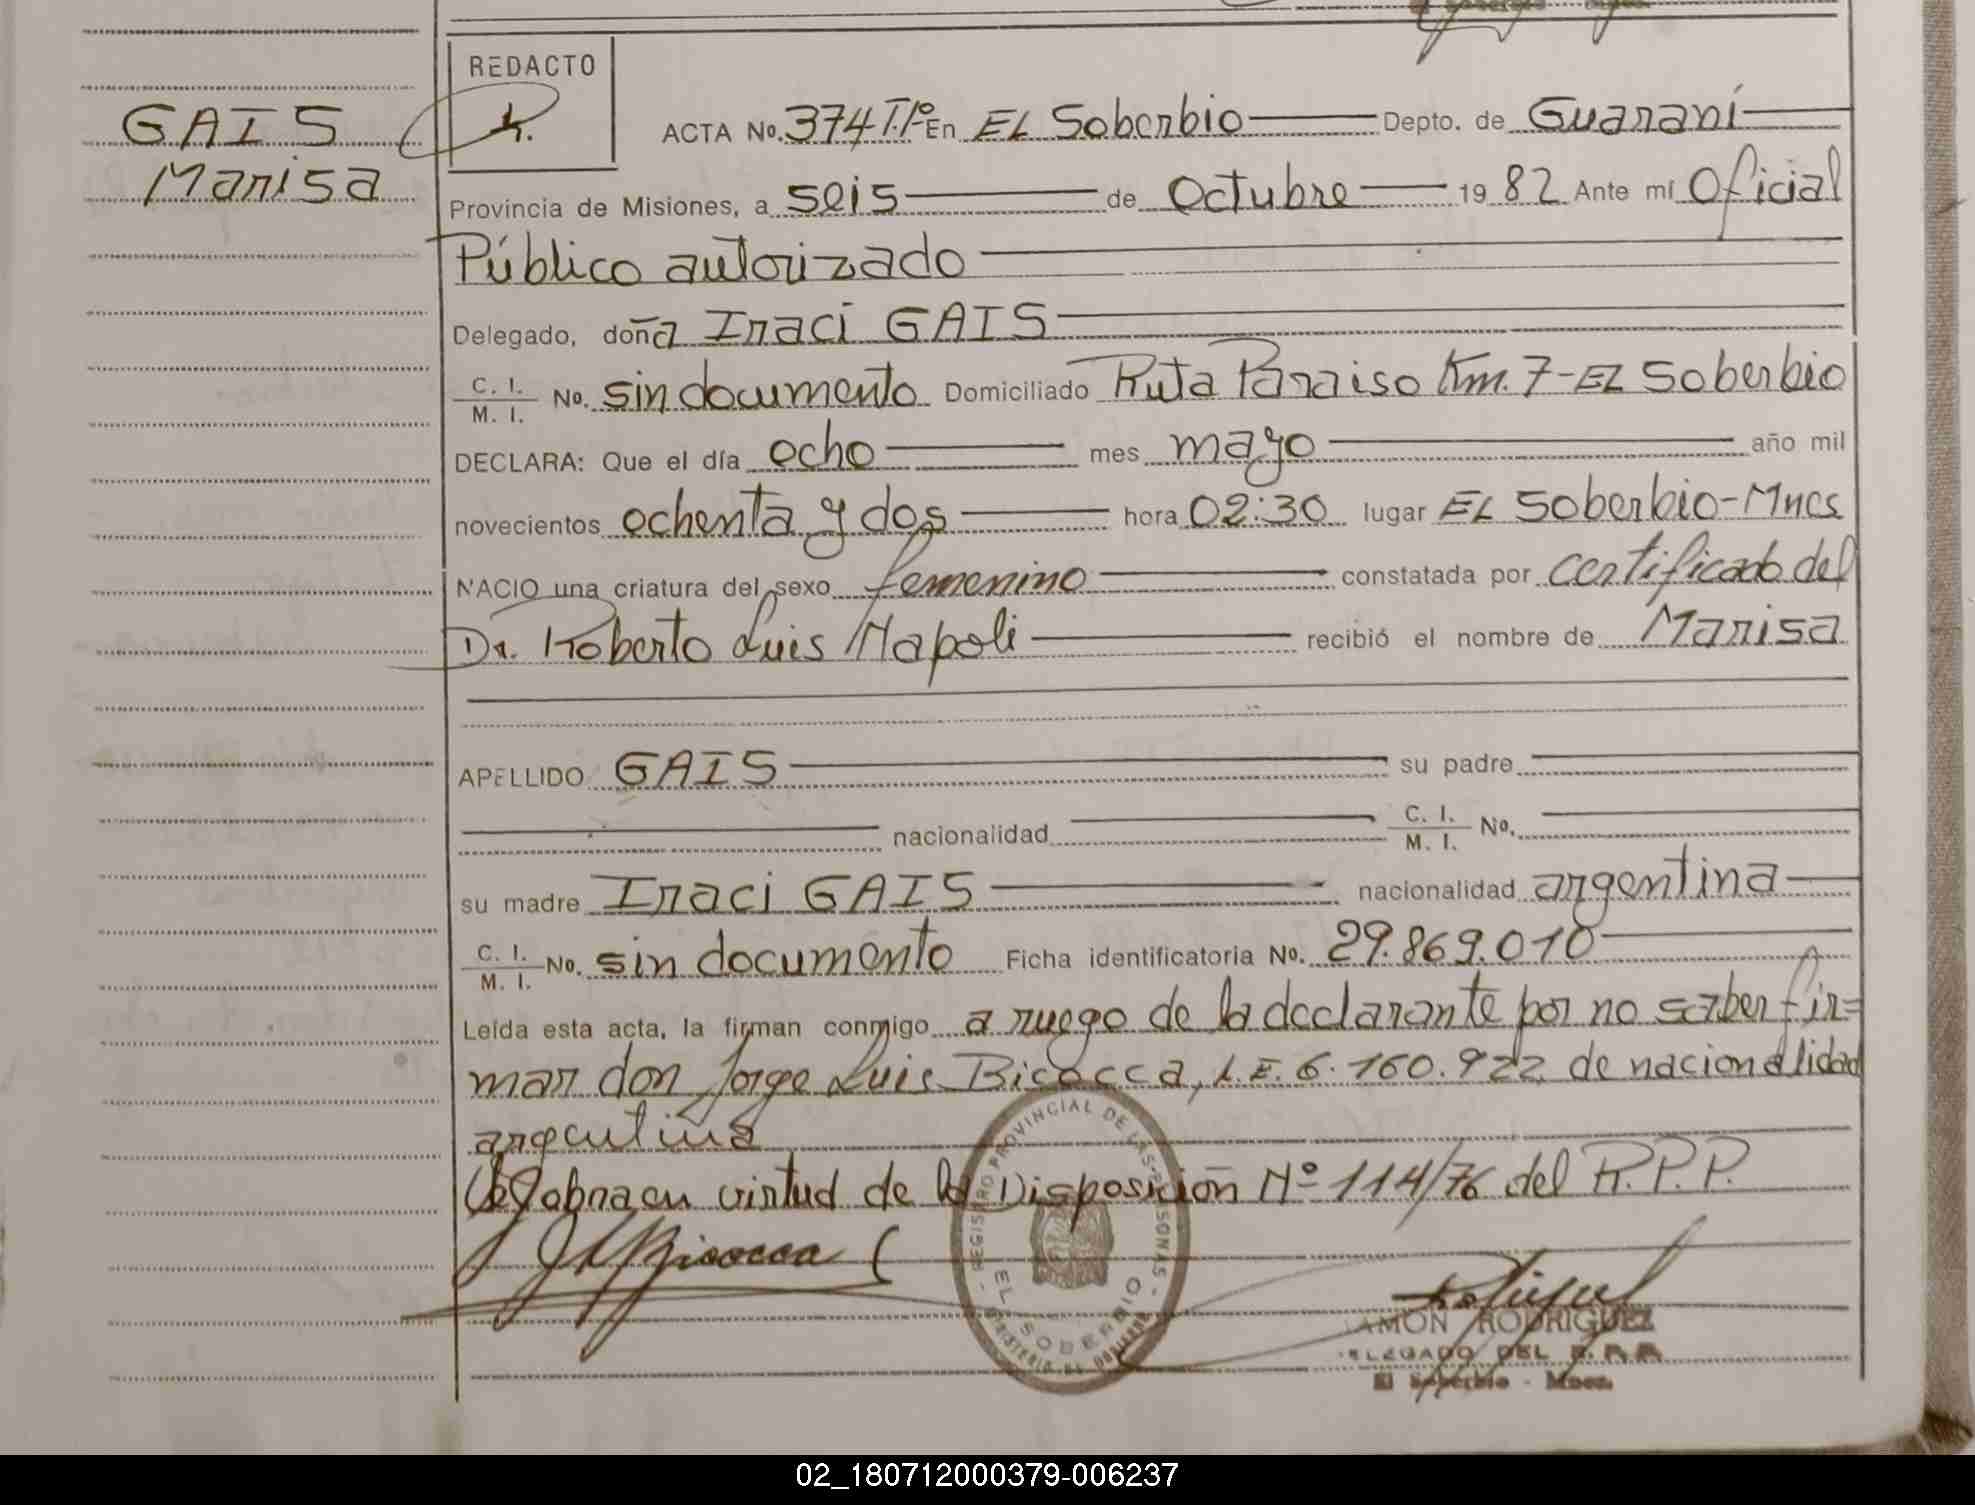 REDACTO
GAIS
Marisa
ACTA No. 374 T.1º En EL Soberbio Depto. de Guaraní
Provincia de Misiones, a seis de Octubre 19 82 Ante mí Oficial
Público autorizado
Delegado, doña Iraci GAIS
C. I. / M. I. No. sin documento Domiciliado Ruta Paraiso Km. 7-EL Soberbio
DECLARA: Que el día ocho mes mayo año mil
novecientos ochenta y dos hora 02:30 lugar EL Soberbio-Mnes
NACIO una criatura del sexo femenino constatada por certificado del
Dr. Roberto Luis Napoli recibió el nombre de Marisa
APELLIDO GAIS su padre
nacionalidad C. I. / M. I. No.
su madre Iraci GAIS nacionalidad argentina
C. I. / M. I. No. sin documento Ficha identificatoria No. 29.869.010
Leída esta acta, la firman conmigo a ruego de la declarante por no saber fir=
mar don Jorge Luis Bicocca, L.E. 6.160.922 de nacionalidad
argentina
Se labra en virtud de la Disposición Nº 114/76 del R.P.P.
Bicocca
REGISTRO PROVINCIAL DE LAS PERSONAS
EL SOBERBIO
MINISTERIO DE GOBIERNO
RAMON RODRIGUEZ
DELEGADO DEL R.P.P.
El Soberbio - Mnes.
02_180712000379-006237